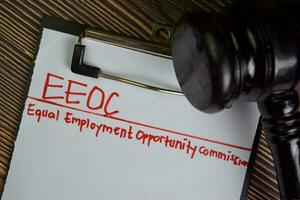 EEOC
Equal Employment Opportunity Commission